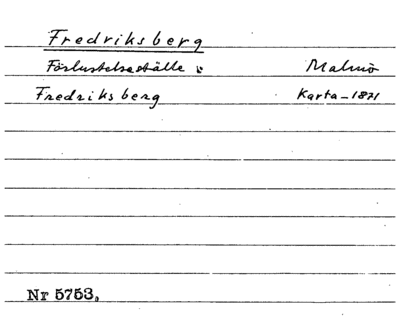 Fredriksberg
Förlustelseställe i Malmö
Fredriksberg Karta-1871
Nr 5753.